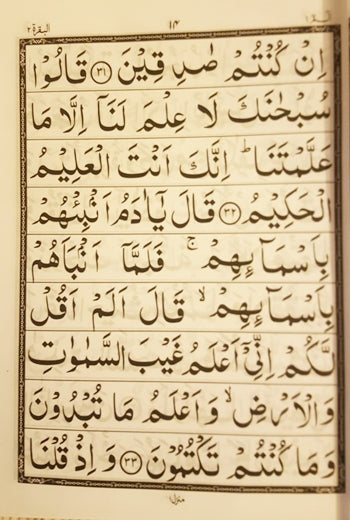 البقرة ٢ ١٤ الٓمّٓ ١
اِنْ كُنْتُمْ صٰدِقِيْنَ ﴿٣١﴾ قَالُوْا
سُبْحٰنَكَ لَا عِلْمَ لَنَاۤ اِلَّا مَا
عَلَّمْتَنَا ؕ اِنَّكَ اَنْتَ الْعَلِيْمُ
الْحَكِيْمُ ﴿٣٢﴾ قَالَ يٰۤاٰدَمُ اَنْۢبِئْهُمْ
بِاَسْمَآىِٕهِمْ ۚ فَلَمَّاۤ اَنْۢبَاَهُمْ
بِاَسْمَآىِٕهِمْ ۙ قَالَ اَلَمْ اَقُلْ
لَّكُمْ اِنِّيْۤ اَعْلَمُ غَيْبَ السَّمٰوٰتِ
وَالْاَرْضِ ۙ وَاَعْلَمُ مَا تُبْدُوْنَ
وَمَا كُنْتُمْ تَكْتُمُوْنَ ﴿٣٣﴾ وَاِذْ قُلْنَا
منزل١